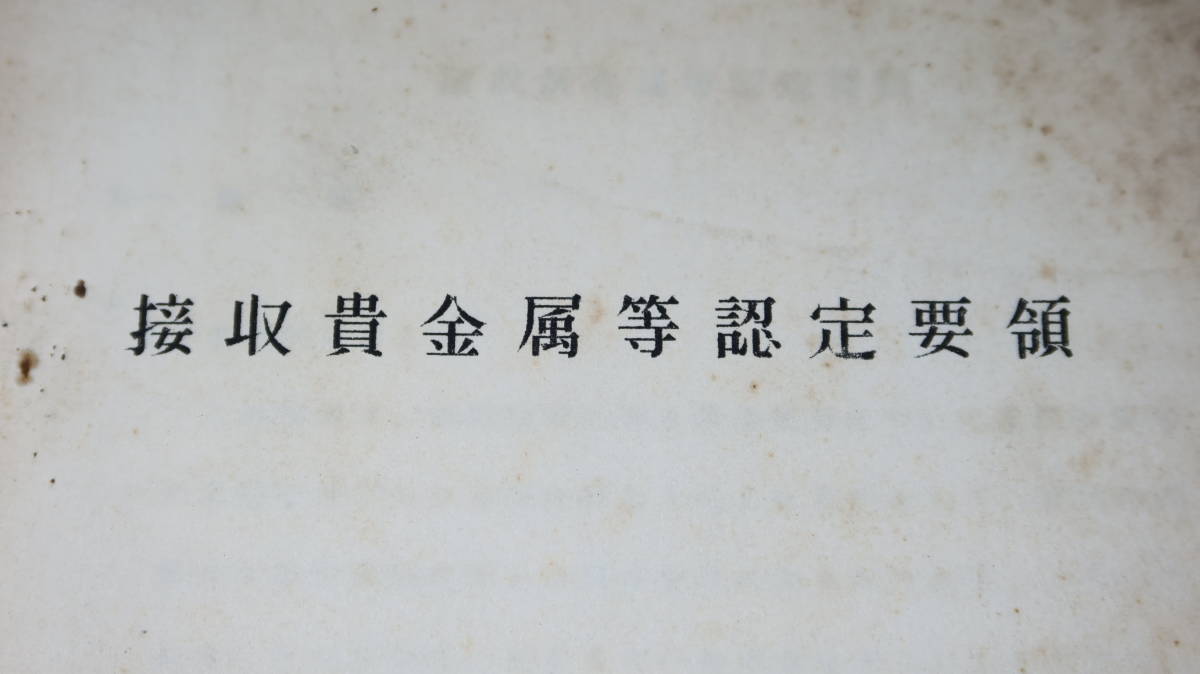 接収貴金属等認定要領